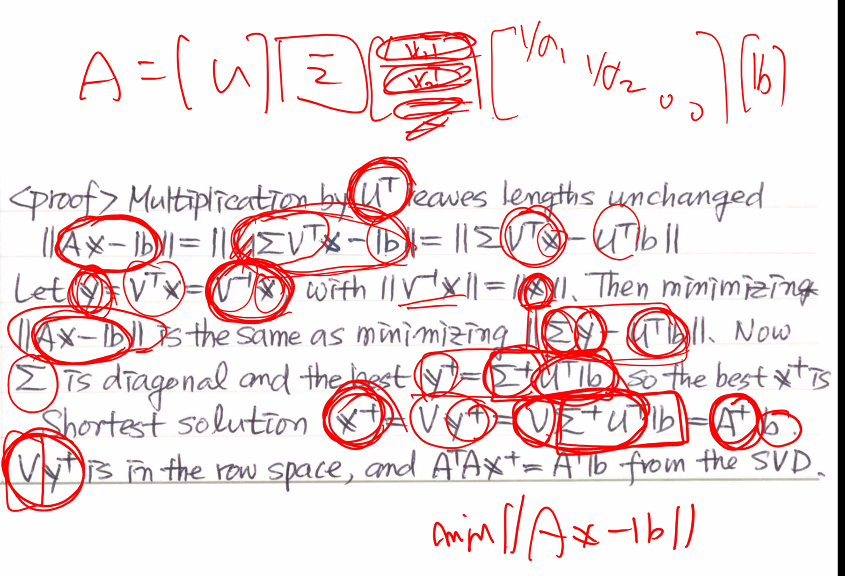 A = [U] [Σ] [V₁ V₂ ] [1/σ₁ 1/σ₂ 0 0] [b]
<proof> Multiplication by Uᵀ leaves lengths unchanged
||Ax-b|| = ||UΣVᵀx-b|| = ||ΣVᵀx-Uᵀb||
Let y=Vᵀx=V⁻¹x with ||V⁻¹x||=||x||. Then minimizing
||Ax-b|| is the same as minimizing ||Σy-Uᵀb||. Now
Σ is diagonal and the best y⁺=Σ⁺Uᵀb, so the best x⁺ is
Shortest solution x⁺=Vy⁺=VΣ⁺Uᵀb=A⁺b.
Vy⁺ is in the row space, and AᵀAx⁺=Aᵀb from the SVD.
min||Ax-b||